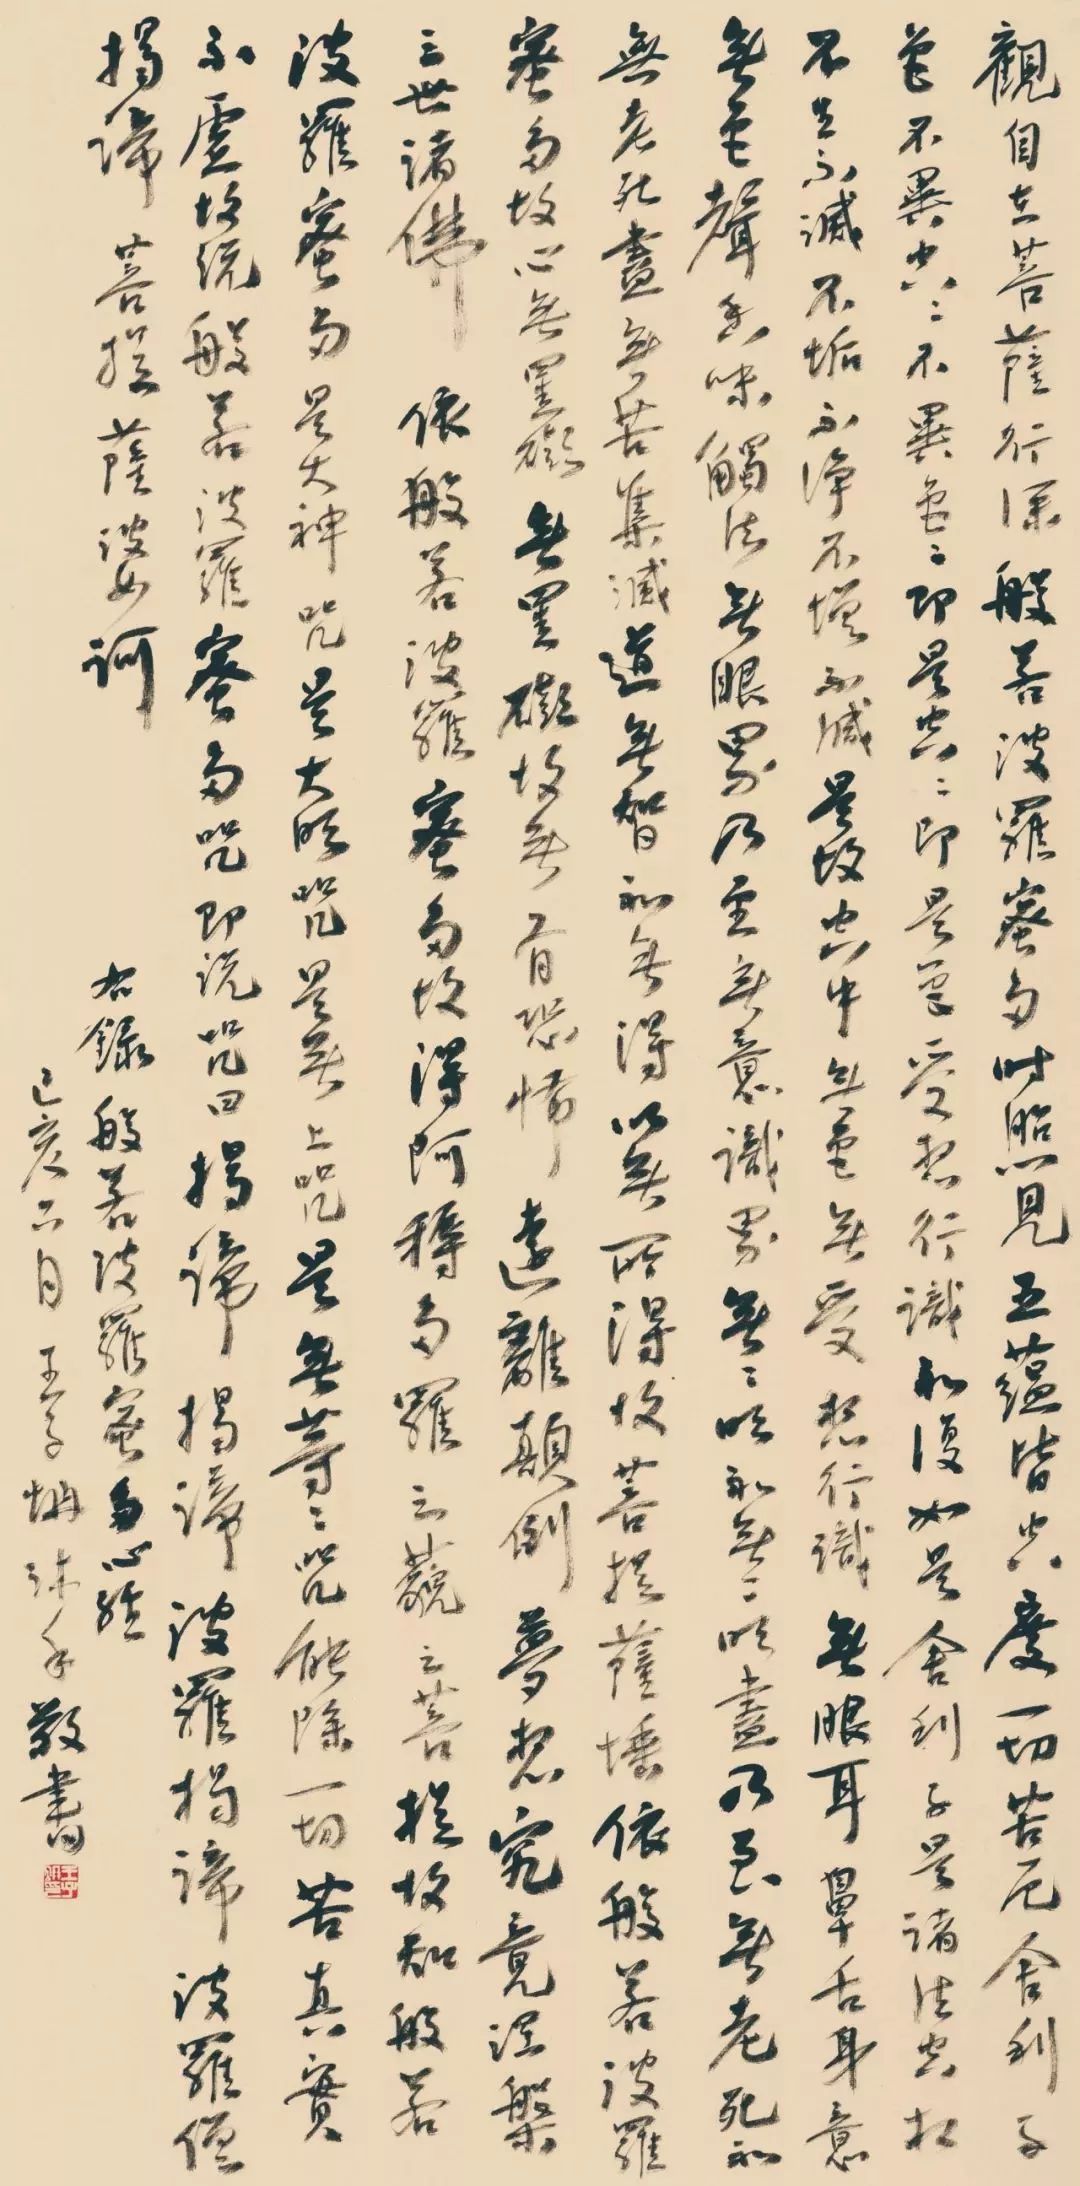 觀自在菩薩行深般若波羅蜜多時照見五蘊皆空度一切苦厄舍利子
色不異空〻不異色〻即是空〻即是色受想行識亦復如是舍利子是諸法空相
不生不滅不垢不淨不增不減是故空中無色無受想行識無眼耳鼻舌身意
無色聲香味觸法無眼界乃至無意識界無〻明亦無〻明盡乃至無老死亦
無老死盡無苦集滅道無智亦無得以無所得故菩提薩埵依般若波羅
蜜多故心無罣礙無罣礙故無有恐怖遠離顛倒夢想究竟涅槃
三世諸佛依般若波羅蜜多故得阿耨多羅三藐三菩提故知般若
波羅蜜多是大神咒是大明咒是無上咒是無等〻咒能除一切苦真實
不虛故說般若波羅蜜多咒即說咒曰揭諦揭諦波羅揭諦波羅僧
揭諦菩提薩婆訶
右錄般若波羅蜜多心經
己亥六月王子敬書